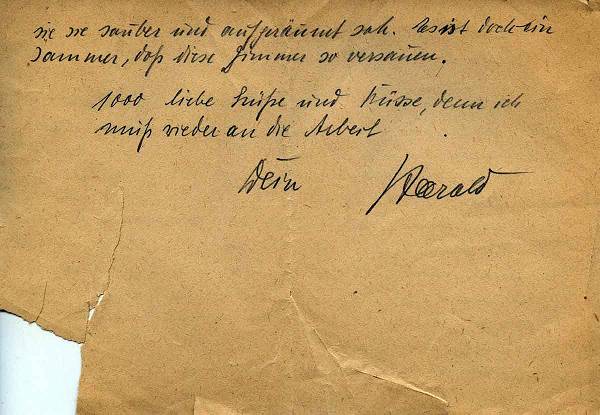 sie sie sauber und aufgeräumt sah. Es ist doch ein
Jammer, daß diese Zimmer so versauen.
1000 liebe Grüße und Küsse, denn ich
muß wieder an die Arbeit
Dein Harald